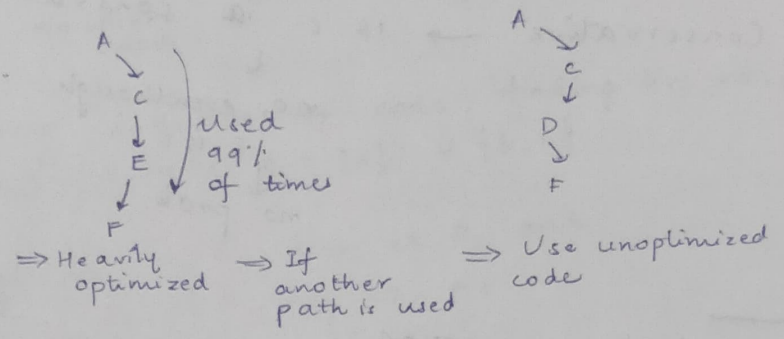 A
C
E
F
Used
99%
of times
A
C
D
F
⇒ Heavily
optimized
⇒ If
another
path is used
⇒ Use unoptimized
code